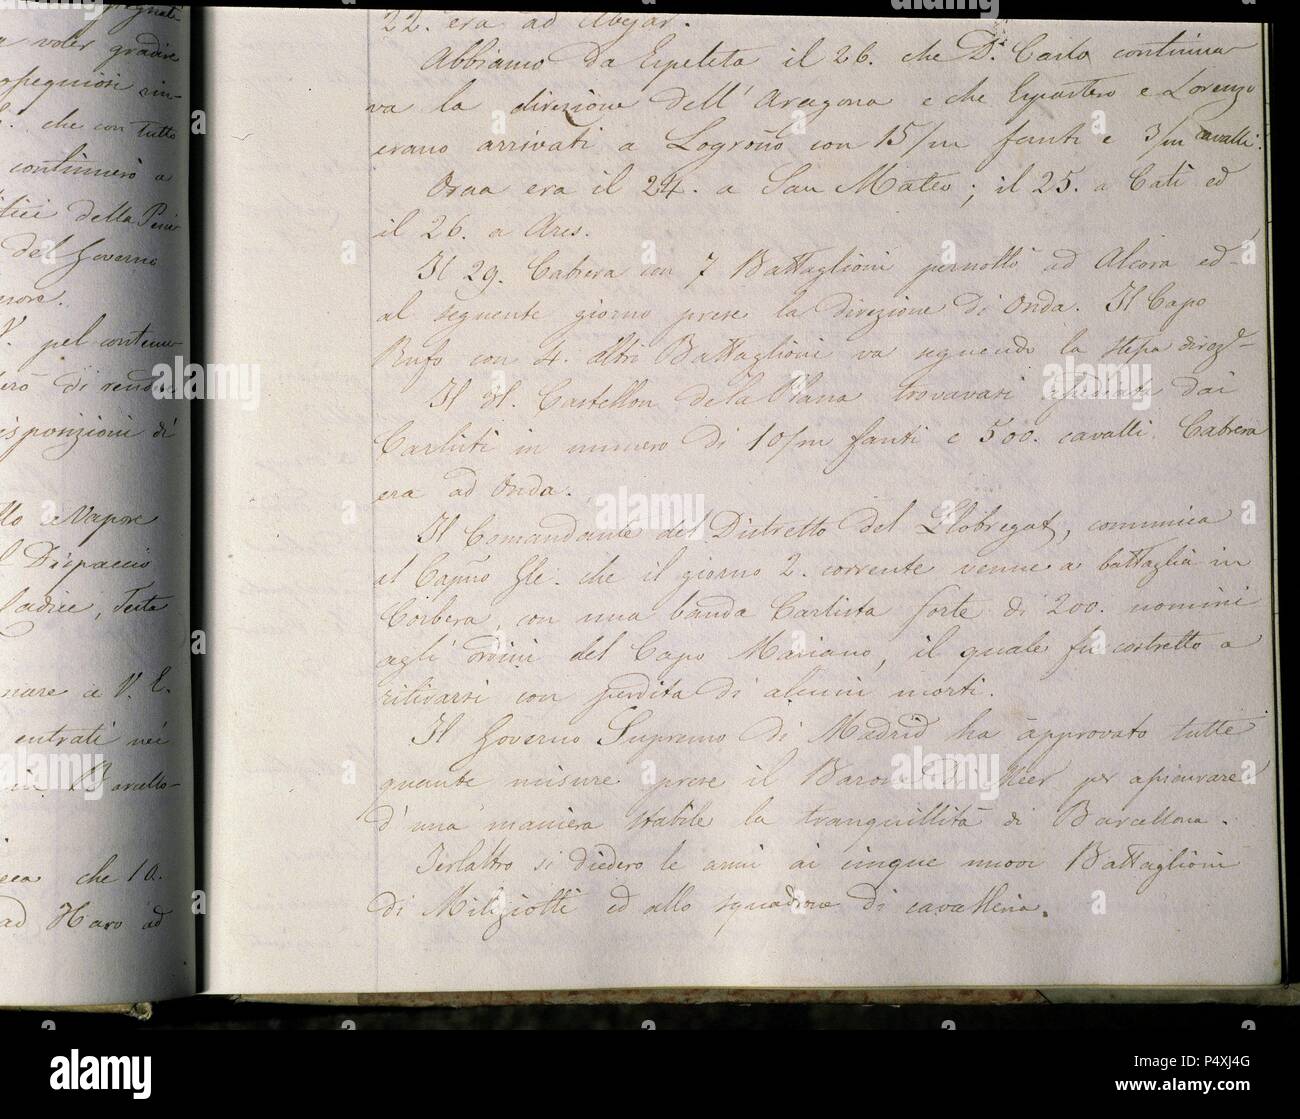 22. era ad Abejar.
Abbiamo da Espeleta il 26. che D. Carlo continua-
va la direzione dell' Aragona e che Espartero e Lorenzo
erano arrivati a Logroño con 15/m fanti e 3/m cavalli.
Oraa era il 24. a San Mateo; il 25. a Catì ed
il 26. a Ares.
Il 29. Cabrera con 7 Battaglioni pernottò ad Alcora ed
al seguente giorno prese la direzione di Onda. Il Capo
Rufo con 4. altri Battaglioni va seguendo la stessa direz.e
Il 31. Castellon de la Plana trovavasi assediata dai
Carlisti in numero di 10/m fanti e 500. cavalli. Cabrera
era ad Onda.
Il Comandante del Distretto del Llobregat, comunica
al Cap.no Gle. che il giorno 2. corrente venne a battaglia in
Corbera, con una banda Carlista forte di 200. uomini
agli ordini del Capo Mariano, il quale fu costretto a
ritirarsi con perdita di alcuni morti.
Il Governo Supremo di Madrid ha approvato tutte
quante misure prese il Barone di Meer per assicurare
d'una maniera stabile la tranquillità di Barcellona.
Jerlaltro si diedero le armi ai cinque nuovi Battaglioni
di Miliziotti ed allo squadrone di cavalleria.
a voler gradire
che con tutto
continuerò a
della Peni-
del Governo
V. pel contenu-
di rendere
disposizioni di
Vapore
Dispaccio
Cadice, Testa
a V. E.
entrati nei
in Barcello-
che 10.
ad Haro ad
alamy
Image ID: P4XJ4G
www.alamy.com